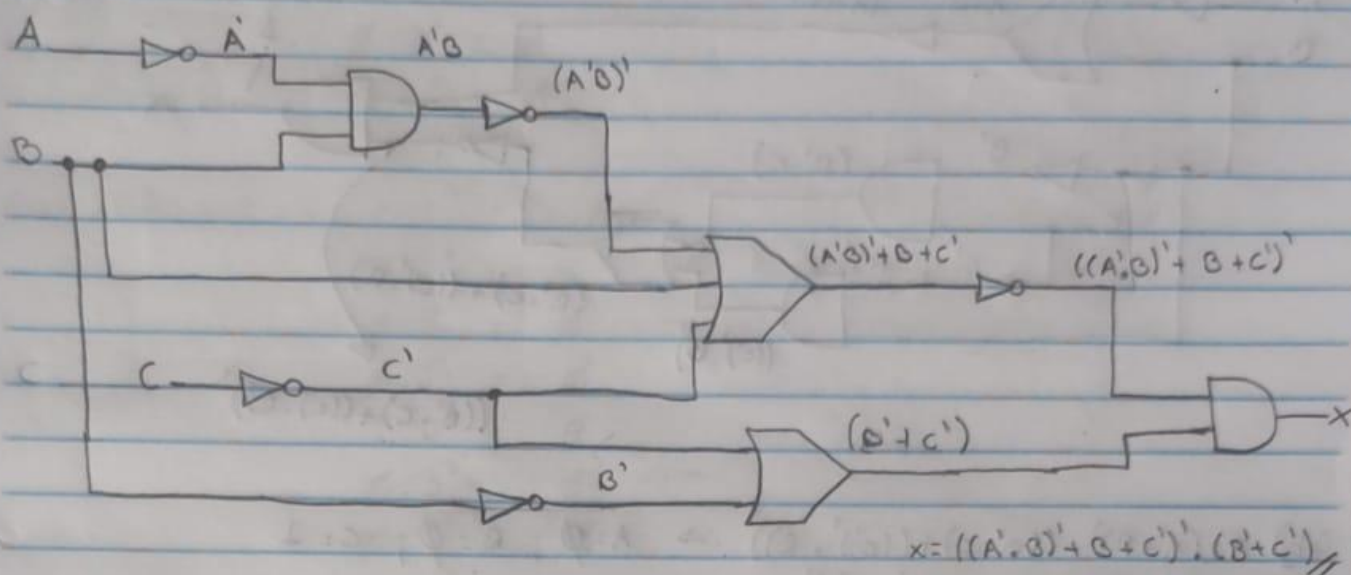 A
A'
A'B
(A'B)'
B
(A'B)'+B+C'
((A'.B)'+ B +C')'
C
C'
(B'+C')
X
B'
x= ((A'.B)'+ B + C')'. (B'+C')